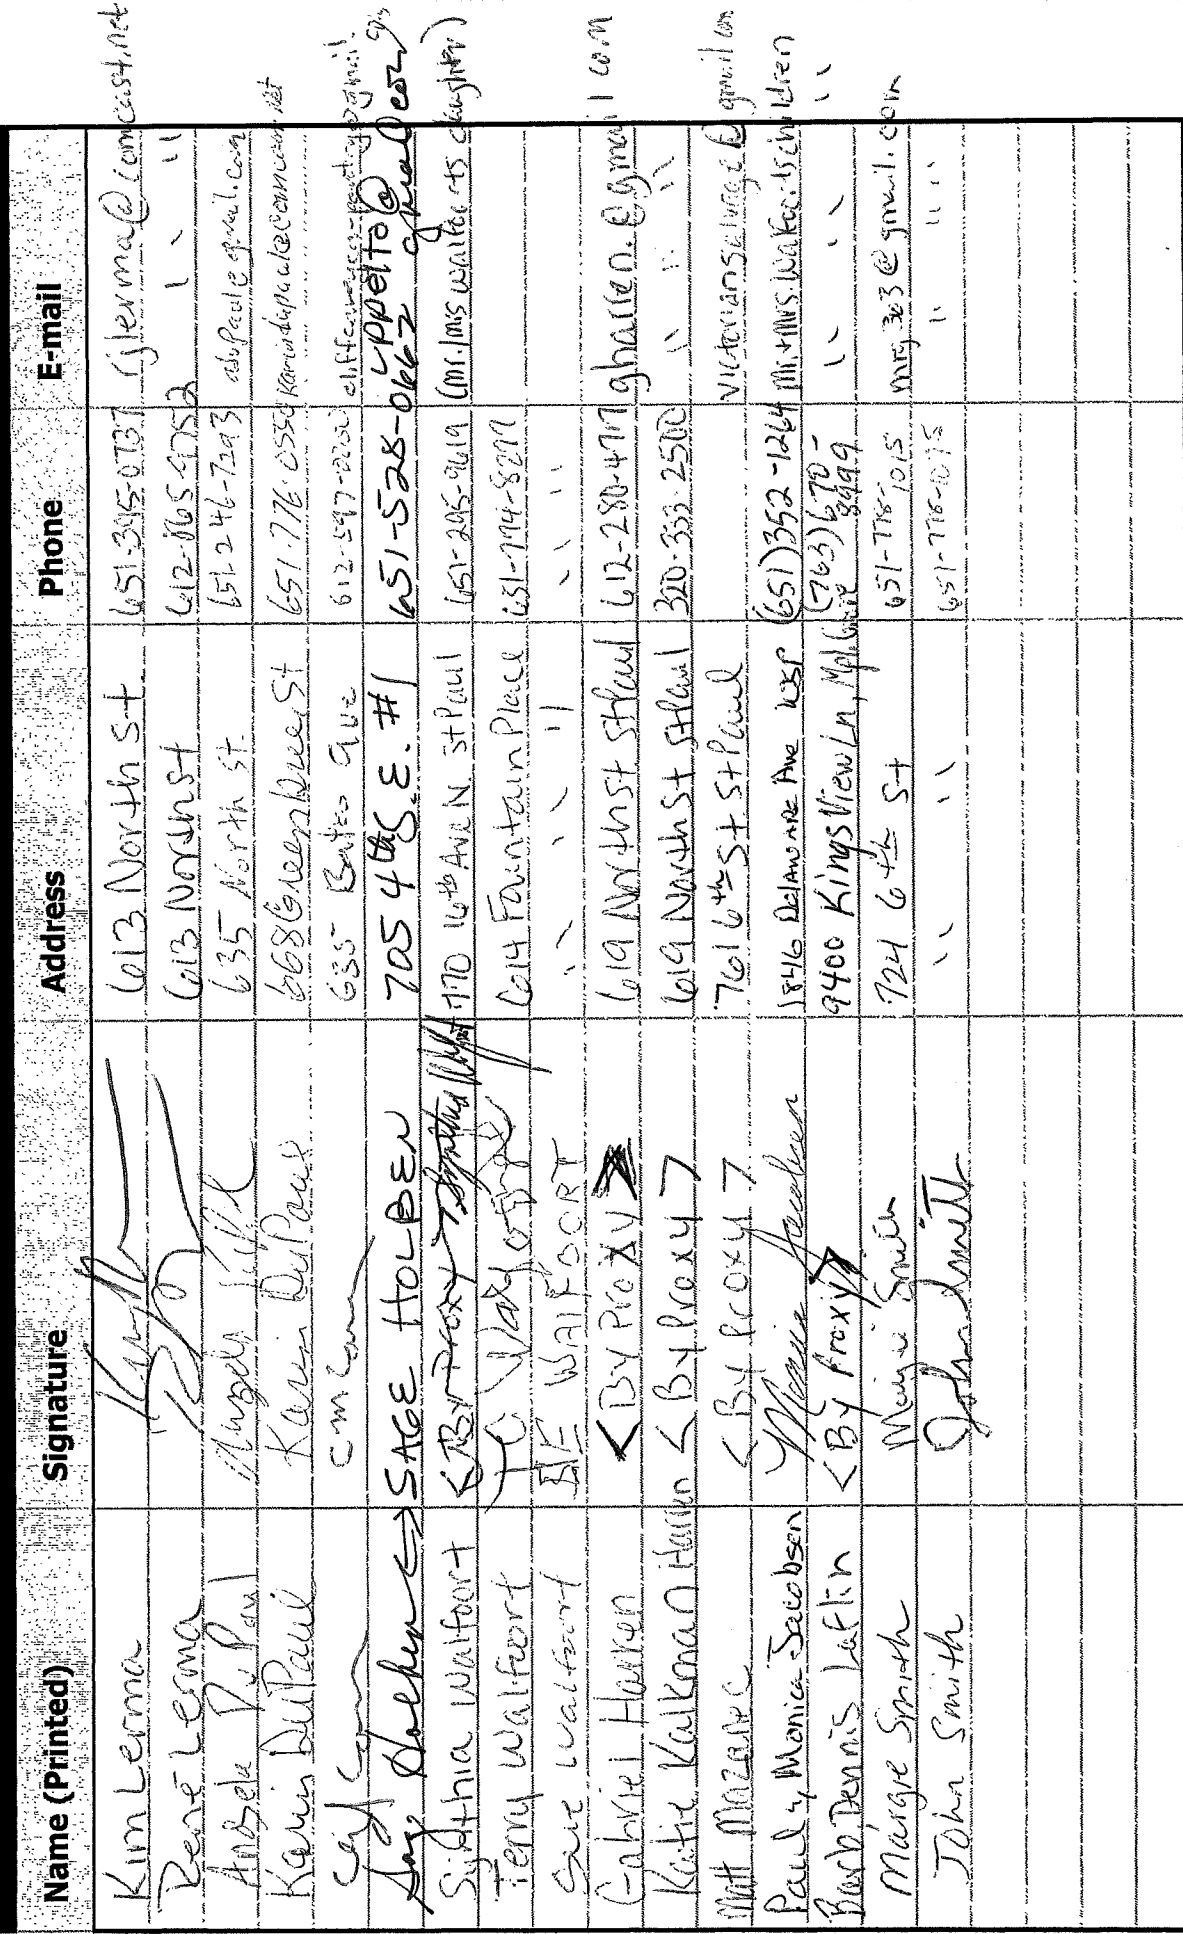 Name (Printed) Signature Address Phone E-mail
Kim Lerma 613 North St. 651-395-0737 rjlerma@comcast.net
René Lerma 613 North St 612-865-9752 " "
Angela DuPaul 635 North St. 651-246-7293 adupaul@gmail.com
Karin DuPaul Karin DuPaul 668 Greenbrier St 651-776-0550 karindupaul@comcast.net
635 Bates Ave
Sage Holben <-> SAGE HOLBEN 705 4th S.E. #1 651-528-0662
Synthia Walfoort <By Proxy> 770 16th Ave N St Paul 651-295-9619 (mr./mrs walfoorts daughter)
Terry Walfoort 614 Fountain Place 651-774-8277
Sue Walfoort WALFOORT " " " " " "
Gabriel Harren <By Proxy> 619 North St St Paul 612-280-4717 gharren.@gmail com
Katie Kalkman Harren <By Proxy> 619 North St St Paul 320-333-2500 " " "
Matt Mazanec <By Proxy> 761 6th St St Paul gmail com
Paul & Monica Jacobsen Monica Jacobsen 1846 Delaware Ave WSP (651)352-1264 Mr.+Mrs. children
Barb Dennis Laflin <By Proxy> 9400 Kings View Ln, (763)670-8999 " " " "
Margie Smith Margie Smith 724 6th St 651-778-1015 mrg.303@gmail.com
John Smith John Smith " " " 651-778- " " "